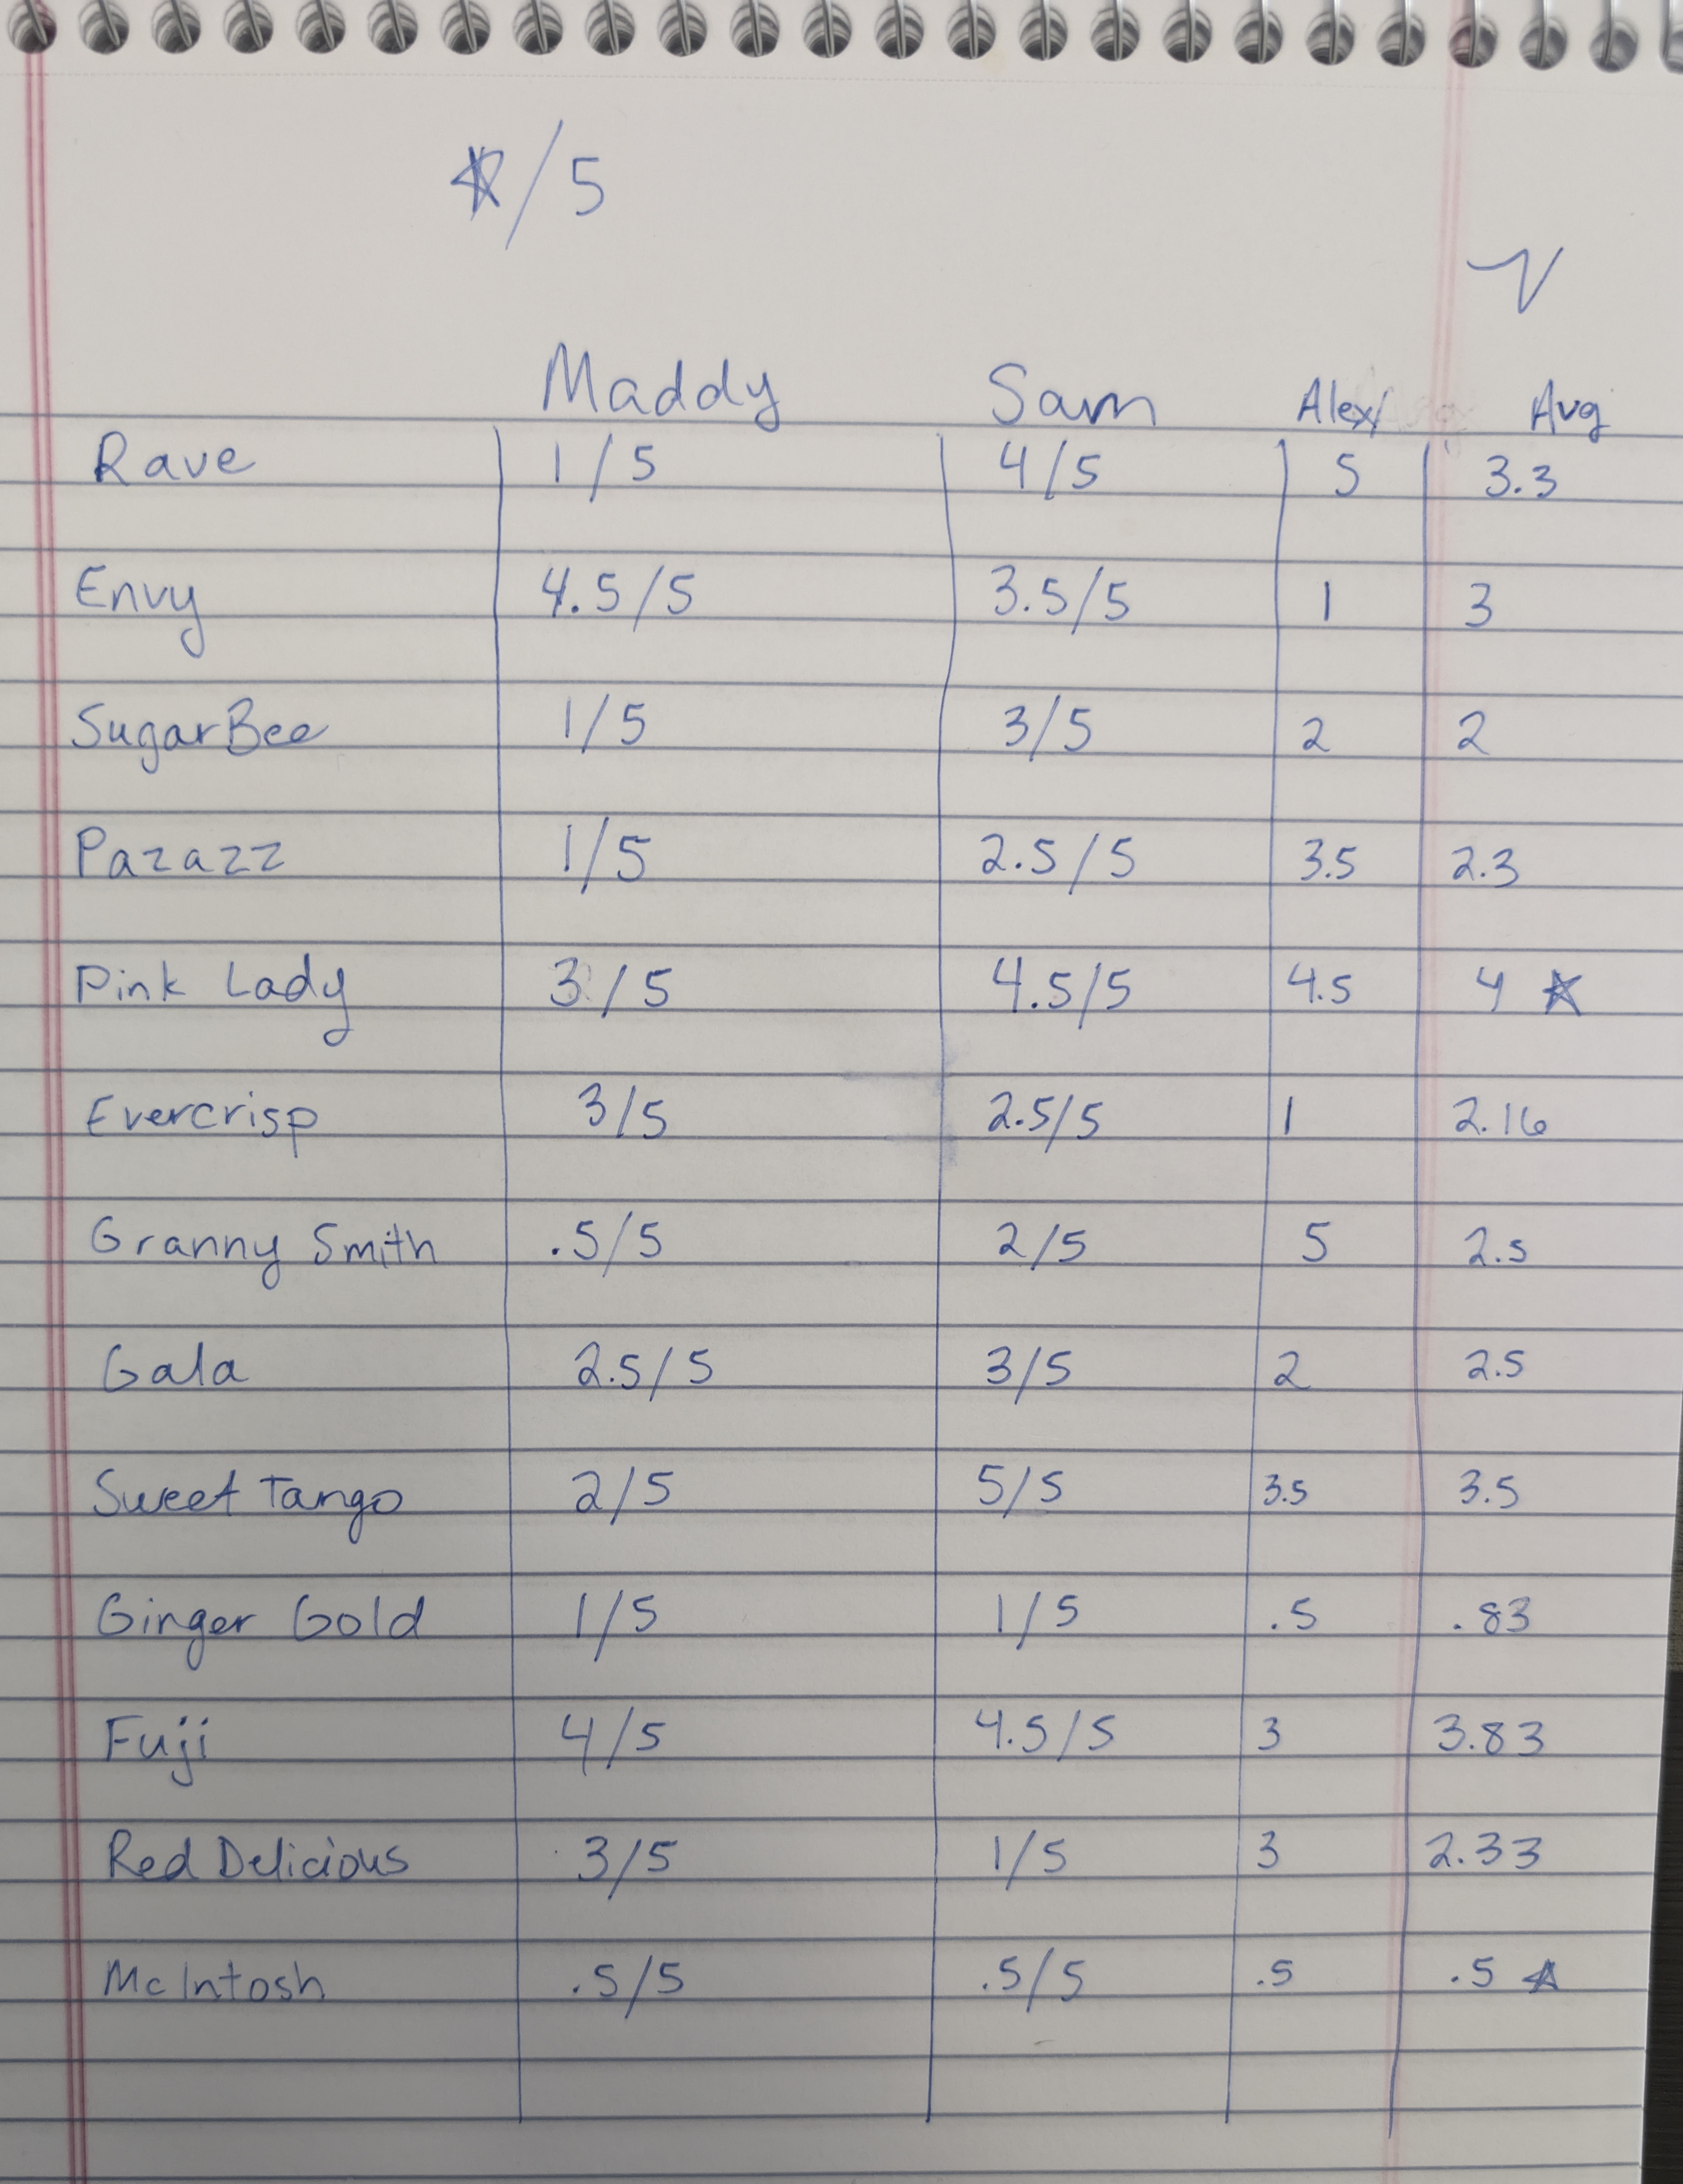 ☆/5
Maddy Sam Alex Avg
Rave 1/5 4/5 5 3.3
Envy 4.5/5 3.5/5 1 3
SugarBee 1/5 3/5 2 2
Pazazz 1/5 2.5/5 3.5 2.3
Pink Lady 3/5 4.5/5 4.5 4 ☆
Evercrisp 3/5 2.5/5 1 2.16
Granny Smith .5/5 2/5 5 2.5
Gala 2.5/5 3/5 2 2.5
Sweet Tango 2/5 5/5 3.5 3.5
Ginger Gold 1/5 1/5 .5 .83
Fuji 4/5 4.5/5 3 3.83
Red Delicious 3/5 1/5 3 2.33
McIntosh .5/5 .5/5 .5 .5 ☆